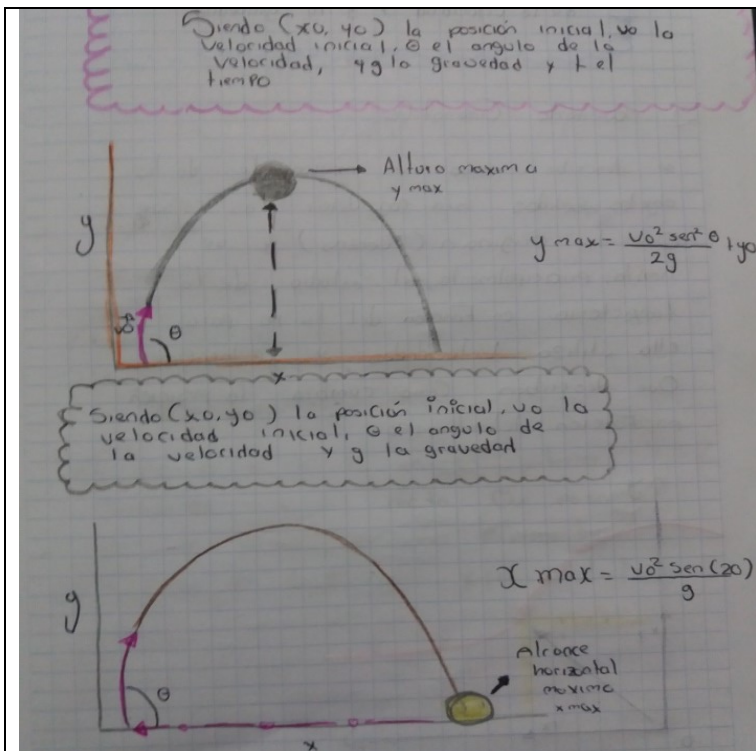 Siendo (x0, y0) la posición inicial, vo la
velocidad inicial, θ el angulo de la
velocidad, y g la gravedad y t el
tiempo
Altura maxima
y max
y
y max = vo² sen² θ / 2g + yo
vo
θ
x
Siendo (x0, y0) la posición inicial, vo la
velocidad inicial, θ el angulo de
la velocidad y g la gravedad
x max = vo² sen(2θ) / g
y
θ
Alcance
horizontal
maximo
x max
x